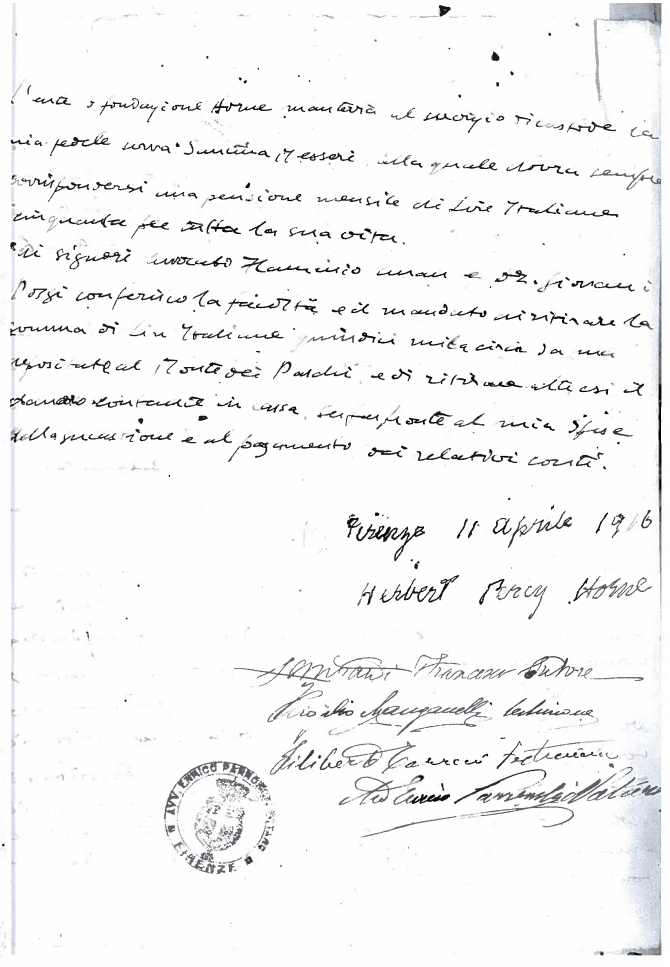 L'ente o fondazione Horne manterrà al servizio di custode la
mia fedele serva Santina Messeri alla quale dovrà sempre
corrispondersi una pensione mensile di Lire Italiane
cinquanta per tutta la sua vita.
Ai signori avvocato Flaminio e Dr. Giovanni
Poggi conferisco la facoltà ed il mandato di ritirare la
somma di Lire Italiane quindici mila circa da me
depositate al Monte dei Paschi e di ritirare altresì il
danaro contante in cassa per far fronte alle mie spese
della successione e al pagamento dei relativi conti.
Firenze 11 aprile 1916
Herbert Percy Horne
Francesco
Virgilio Manganelli testimone
Filiberto testimone
Enrico
AVV. ENRICO NOTARO
FIRENZE